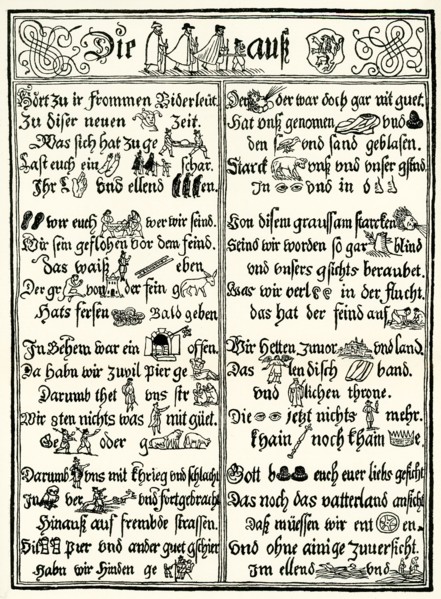 Die auß
Hört zu ir frommen Biderleüt
Zu diser neuen Zeit.
Was sich hat zu ge
Last euch ein schar.
Ihr L und ellend en.
wir euch wer wir seind.
Wir sein geflohen vor dem feind.
das waiß eben
Der gr von der fein g
Hats fersen Bald geben
In Behem war ein offen.
Da habn wir zuvil Pier ge
Darumb thet uns str
Wir 8ten nichts was mit güet.
Ge oder g
Darumb uns mit khrieg und schlacht
In ver und fortgebracht
Hinauß auf frembde strassen.
Pier und ander guet gschier
Habn wir Hinden ge
Den der war doch gar nit guet.
Hat unß genomen und
den und sand geblasen.
Starck unß und unser gsind
In und in d
Von disem graussam starcken
Seind wir worden so gar blind
und unsers gsichts beraubet.
Was wir verl in der flucht.
das hat der feind auf
Wir Hetten zuvor und land.
Das lendisch band.
und lichen throne.
Die jetzt nichts mehr.
khain noch kham e.
Gott b euch euer liebs gesicht
Das noch das vatterland ansicht
Daß müessen wir ent en.
Und ohne ainige zuversicht.
Im ellend und